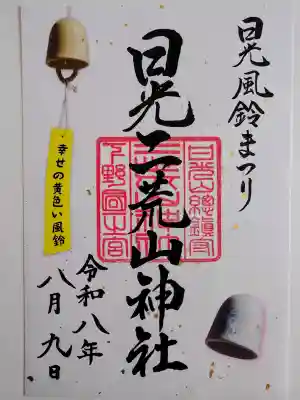 日光風鈴まつり
日光二荒山神社
日光山總鎮守
下野國一宮
幸せの黄色い風鈴
令和八年
八月九日